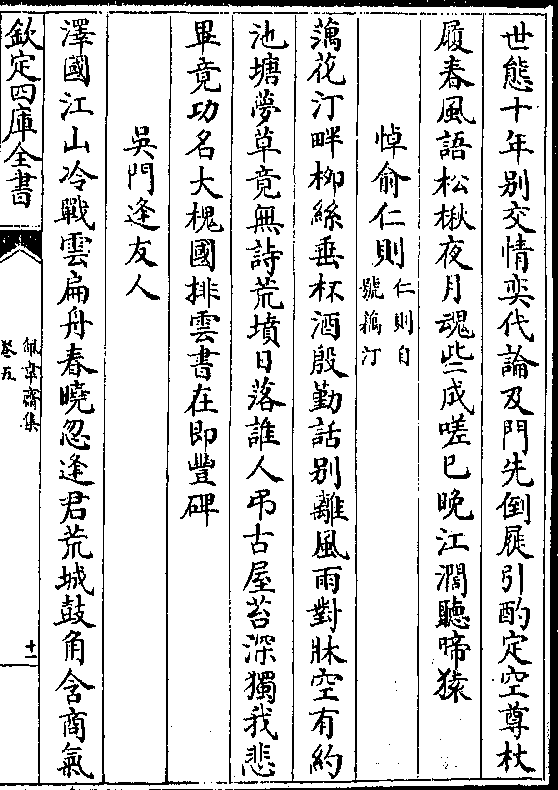 世態十年別交情奕代論及門先倒屐引酌定空尊杖
履春風語松楸夜月魂些成嗟已晚江濶聽啼猿
悼俞仁則
仁則自
號藕汀
藕花汀畔柳絲垂杯酒殷勤話别離風雨對牀空有約
池塘夢草竟無詩荒墳日落誰人弔古屋苔深獨我悲
畢竟功名大槐國排雲書在即豐碑
吳門逢友人
澤國江山冷戰雲扁舟春曉忽逢君荒城鼓角含商氣
欽定四庫全書
佩韋齋集
卷五
十一